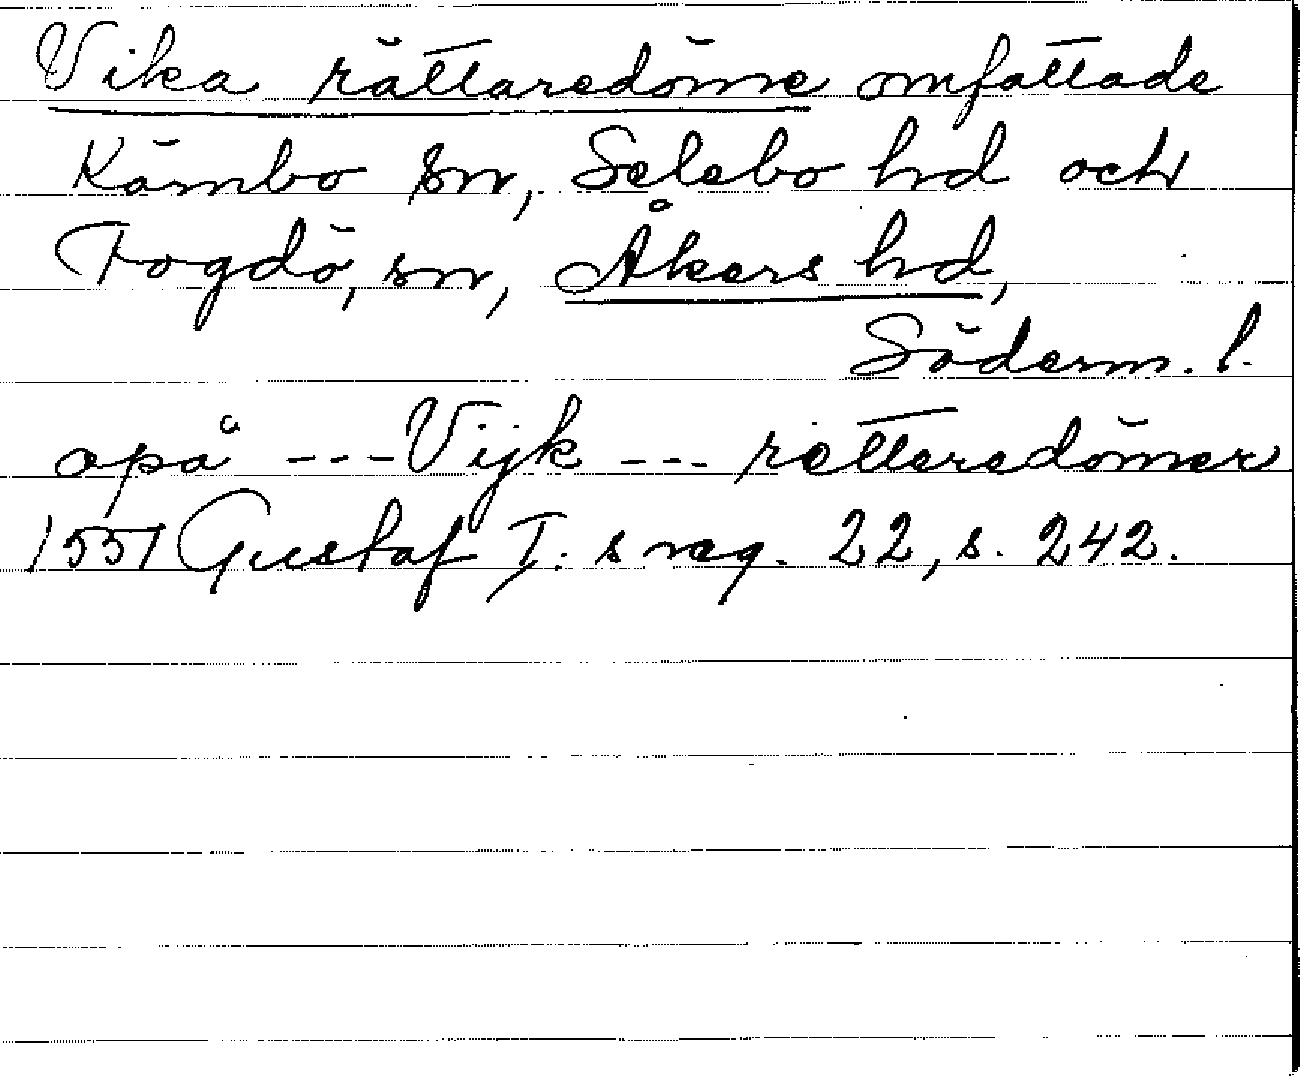 Vika rättaredöme omfattade
Kärnbo sn, Selebo hd och
Fogdö, sn, Åkers hd,
Söderm. l.
opå --- Vijk --- rættaredömer
1551 Gustaf I: s reg. 22, s. 242.